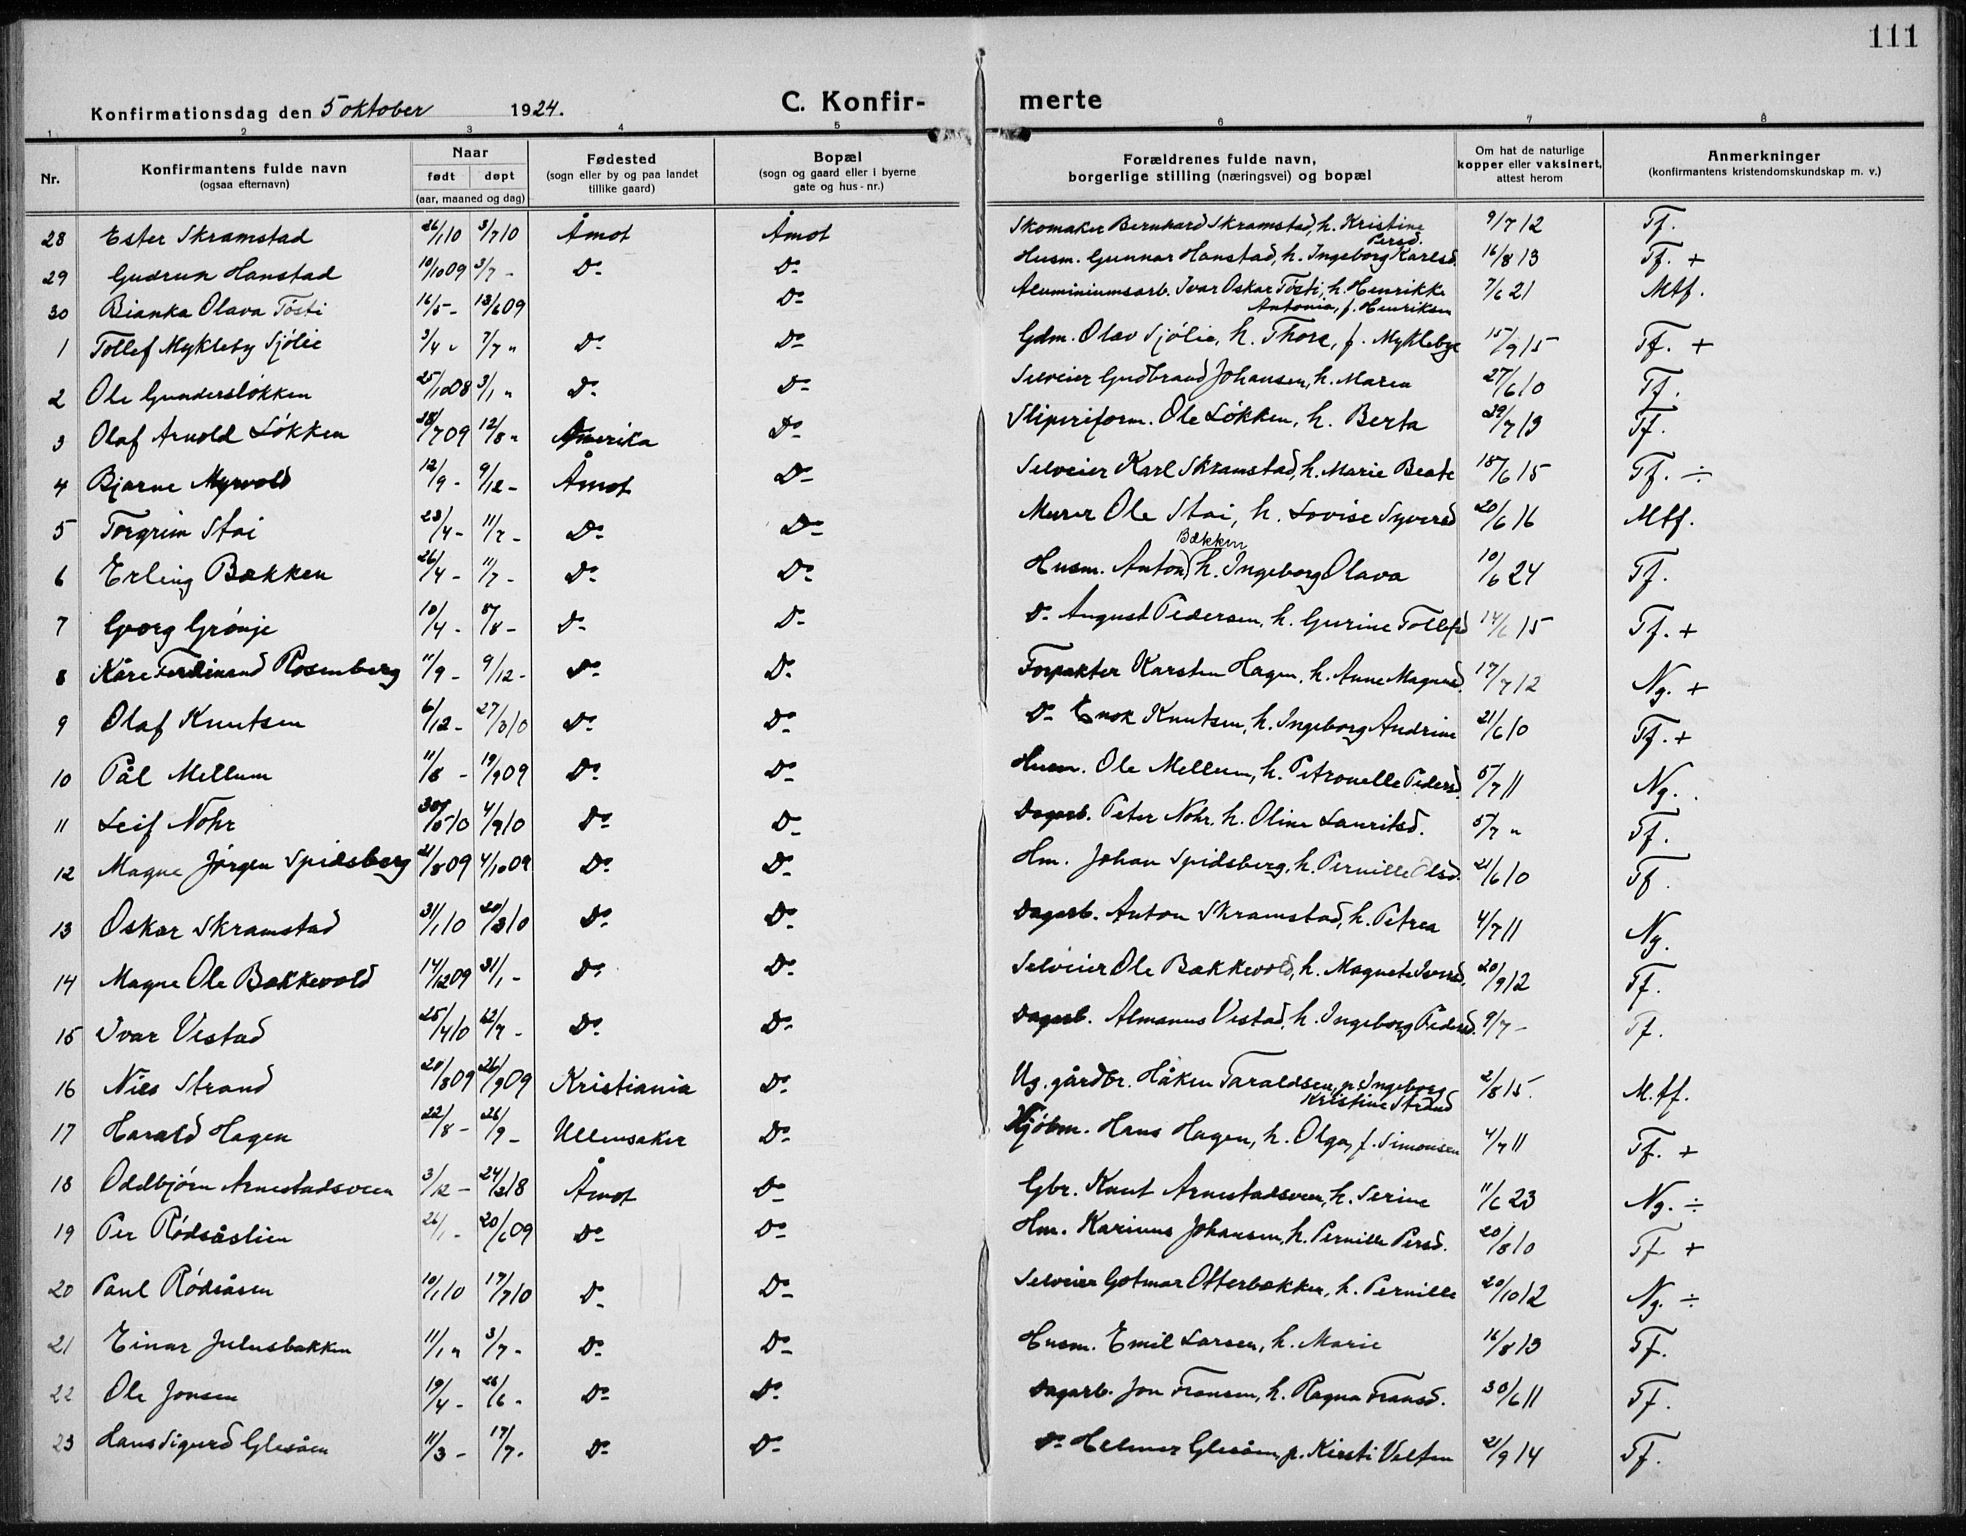 111
Konfirmationsdag den 5 oktober 1924. C. Konfir- merte
1 2 3 4 5 6 7 8
Nr. Konfirmantens fulde navn (ogsaa efternavn) Naar født døpt (aar, maaned og dag) Fødested (sogn eller by og paa landet tillike gaard) Bopæl (sogn og gaard eller i byerne gate og hus-nr.) Forældrenes fulde navn, borgerlige stilling (næringsvei) og bopæl Om hat de naturlige kopper eller vaksinert, attest herom Anmerkninger (konfirmantens kristendomskundskap m. v.)
28 Ester Skramstad 26/1 10 3/7 10 Åmot Åmot Skomaker Bernhard Skramstad, h. Kristine Persd. 9/7 12 Tf.
29 Gudrun Hanstad 10/10 09 3/7 - Do Do Husm. Gunnar Hanstad, h. Ingeborg Karlsd. 16/8 13 Tf. +
30 Bianka Olava Tósti 16/5 - 13/6 09 Do Aluminiumsarb. Ivar Oskar Tósti, h. Henrikke Antonia, f. Henriksen 7/6 21 Mtf.
1 Tollef Mykleby Sjólie 3/4 " 7/7 " Do Do Gdm. Olav Sjólie, h. Thora, f. Myklebye 15/9 15 Tf. +
2 Ole Gunderslókken 25/10 08 3/1 " Do Do Selveier Gudbrand Johansen, h. Maren 27/6 10 Tf.
3 Olaf Arnold Lókken 28/7 09 12/8 " Amerika Do Sliperiform. Ole Lókken, h. Berta 29/7 13 Tf.
4 Bjarne Myrvold 12/9 - 9/12 - Åmot Do Selveier Karl Skramstad, h. Marie Beate 18/6 15 Tf. ÷
5 Torgrim Stai 23/4 - 11/7 - Do Do Murer Ole Stai, h. Lovise Syversd 20/6 16 Mtf.
6 Erling Bækken 26/4 - 11/7 - Do Do Husm. Anton Bækken, h. Ingeborg Olava 10/6 24 Tf.
7 Georg Grónje 10/4 - 8/8 - Do Do Do August Pedersen, h. Gurine Tollefsd 14/6 15 Tf. +
8 Kåre Ferdinand Rosenberg 11/9 - 9/12 - Do Do Forpakter Karsten Hagen, h. Anne Magnusd. 17/7 12 Ng. +
9 Olaf Knutsen 6/12 - 27/3 10 Do Do Do Enok Knutsen, h. Ingeborg Andrine 21/6 10 Tf. +
10 Pål Mellum 11/8 - 19/9 09 Do Do Husm. Ole Mellum, h. Petronelle Pedersd. 5/7 11 Ng.
11 Leif Nohr 30/5 10 4/9 10 Do Do Dagarb. Peter Nohr, h. Oline Lauritsd. 5/7 " Tf.
12 Magne Jórgen Spidsberg 21/8 09 4/10 09 Do Do Hm. Johan Spidsberg, h. Pernille Olsd. 21/6 10 Tf.
13 Oskar Skramstad 31/1 10 20/3 10 Do Do Dagarb. Anton Skramstad, h. Petrea 4/7 11 Ng.
14 Magne Ole Bakkevold 14/12 09 31/1 - Do Do Selveier Ole Bakkevold, h. Magnete Iversd. 20/9 12 Tf.
15 Ivar Vestad 25/4 10 12/7 - Do Do Dagarb. Almanus Vestad, h. Ingeborg Pedersd. 9/7 - Tf.
16 Nils Strand 20/8 09 26/9 09 Kristiania Do Ug. gårdbr. Håken Taraldsen, p. Ingeborg Kristine Strand 2/8 15. M.tf.
17 Harald Hagen 22/8 - 26/9 - Ullensaker Do Kjóbm. Hans Hagen, h. Olga, f. Simonsen 4/7 11 Tf. +
18 Oddbjórn Arnestadsveen 3/12 - 24/2 18 Åmot Do Gbr. Knut Arnestadsveen, h. Serine 11/6 23 Ng. ÷
19 Per Ródsåslien 26/1 - 20/6 09 Do Do Hm. Karinus Johansen, h. Pernille Persd. 20/8 10 Tf +
20 Paul Ródsåsen 10/1 10 17/7 10 Do Do Selveier Gotmar Otterbækken, h. Pernille 20/10 12 Ng. ÷
21 Einar Julusbakken 11/1 " 3/7 - Do Do Husm. Emil Larsen, h. Marie 16/8 13 Tf.
22 Ole Jonsen 19/4 - 26/6 - Do Do Dagarb. Jon Fransen, h. Ragna Fransd. 30/6 11 Tf.
23 Hans Sigurd Glesåen 11/3 - 17/7 - Do Do Do Helmer Glesåen, p. Kirsti Velten 21/9 14 Tf.